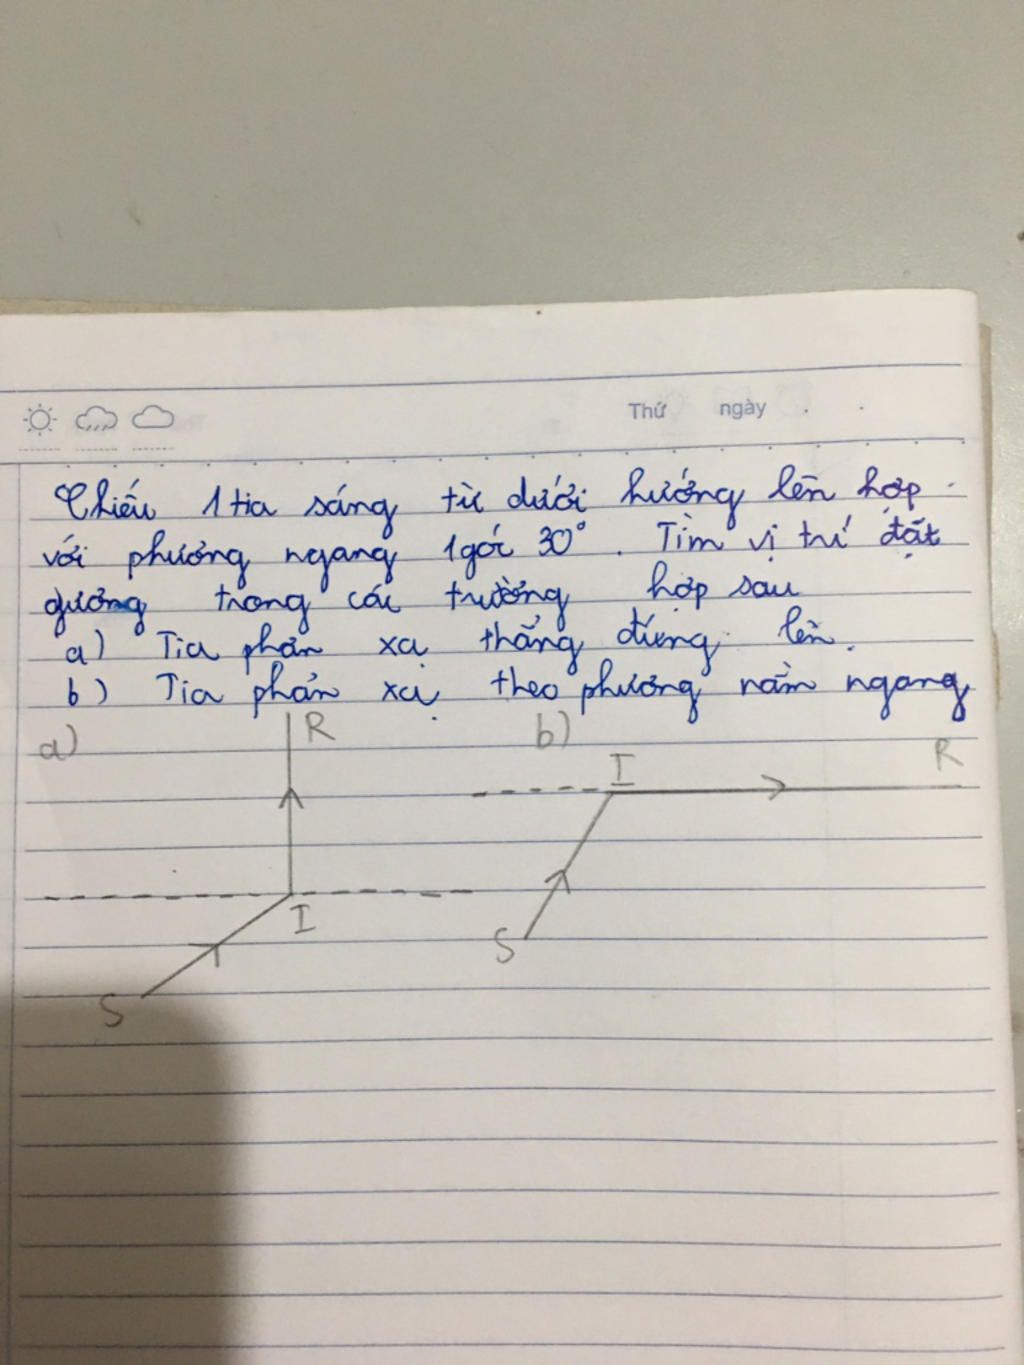 Thứ ngày
Chiếu 1 tia sáng từ dưới hướng lên hợp
với phương ngang 1 góc 30°. Tìm vị trí đặt
gương trong các trường hợp sau
a) Tia phản xạ thẳng đứng lên.
b) Tia phản xạ theo phương nằm ngang
a) R b) I R
I S
S